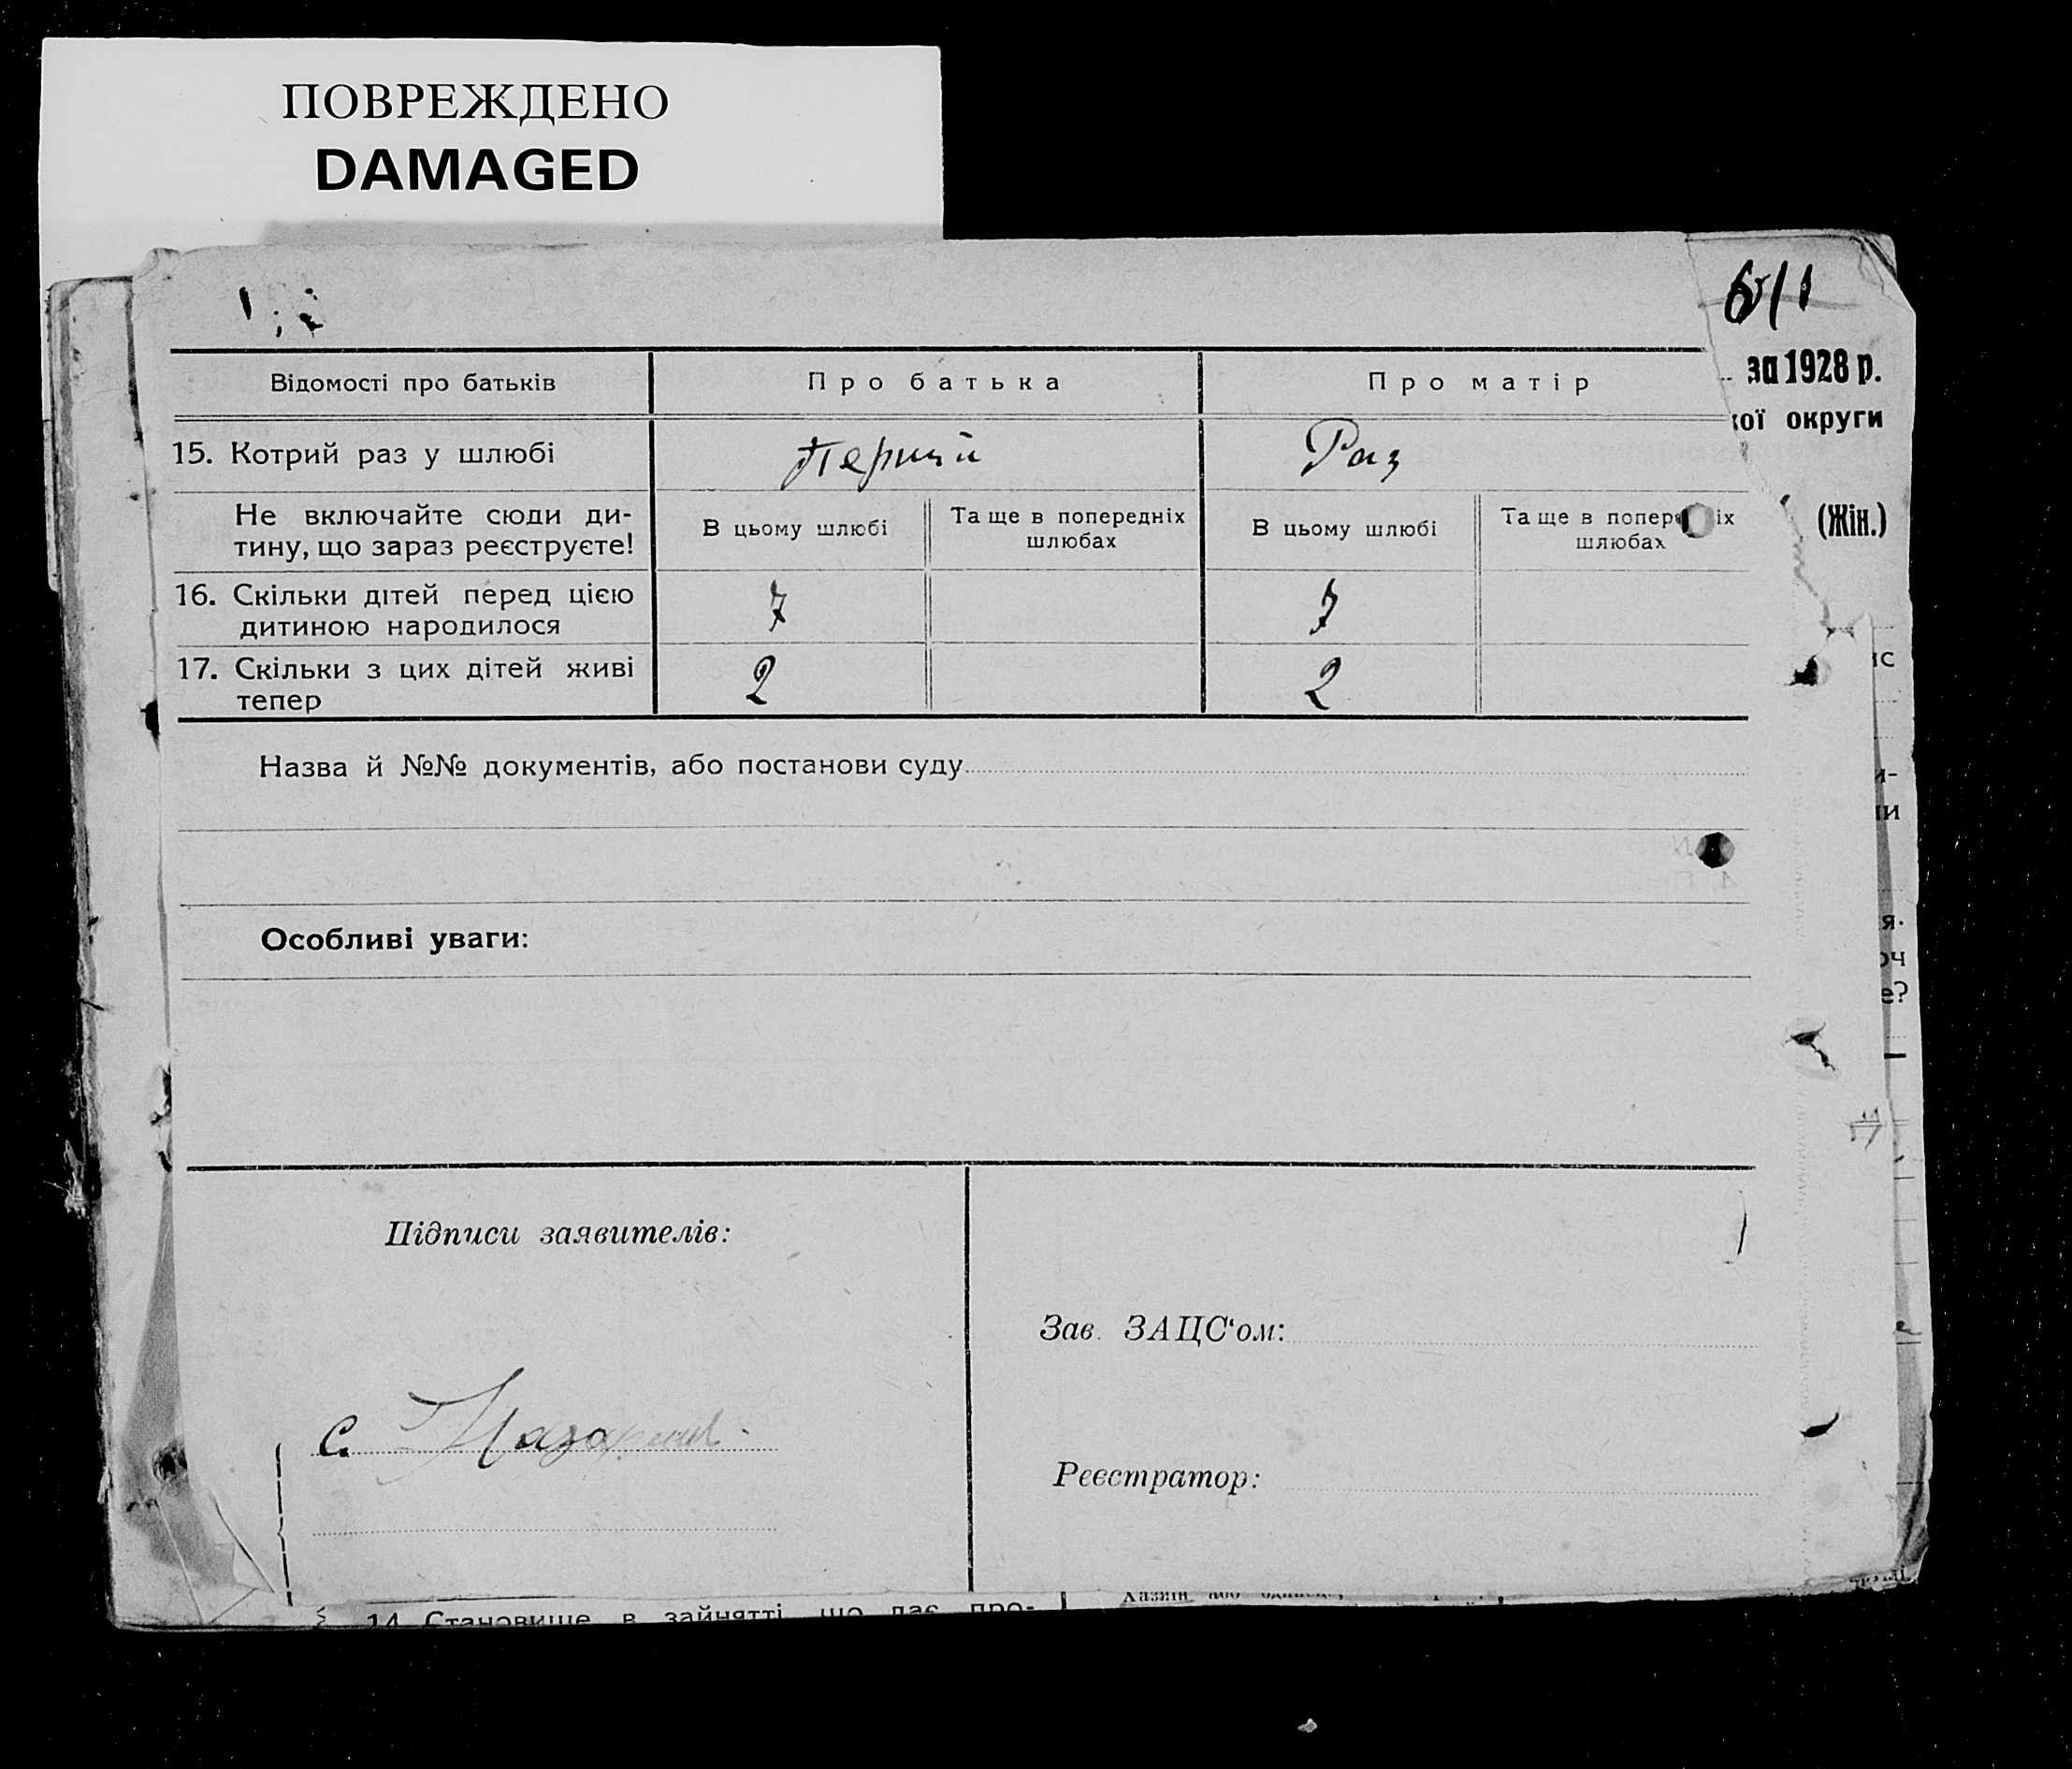 ПОВРЕЖДЕНО
DAMAGED
за 1928 р.
Відомості про батьків Про батька Про матір
округи
15. Котрий раз у шлюбі Перший Раз
Не включайте сюди ди-
тину, що зараз реєструєте! В цьому шлюбі Та ще в попередніх шлюбах В цьому шлюбі Та ще в шлюбах
(Жін.)
16. Скільки дітей перед цією
дитиною народилося 7 7
17. Скільки з цих дітей живі
тепер 2 2
Назва й №№ документів, або постанови суду
Особливі уваги:
Підписи заявителів:
Зав. ЗАЦС‘ом:
С.
Реєстратор:
14 Становище в зайнятті, що дає про-